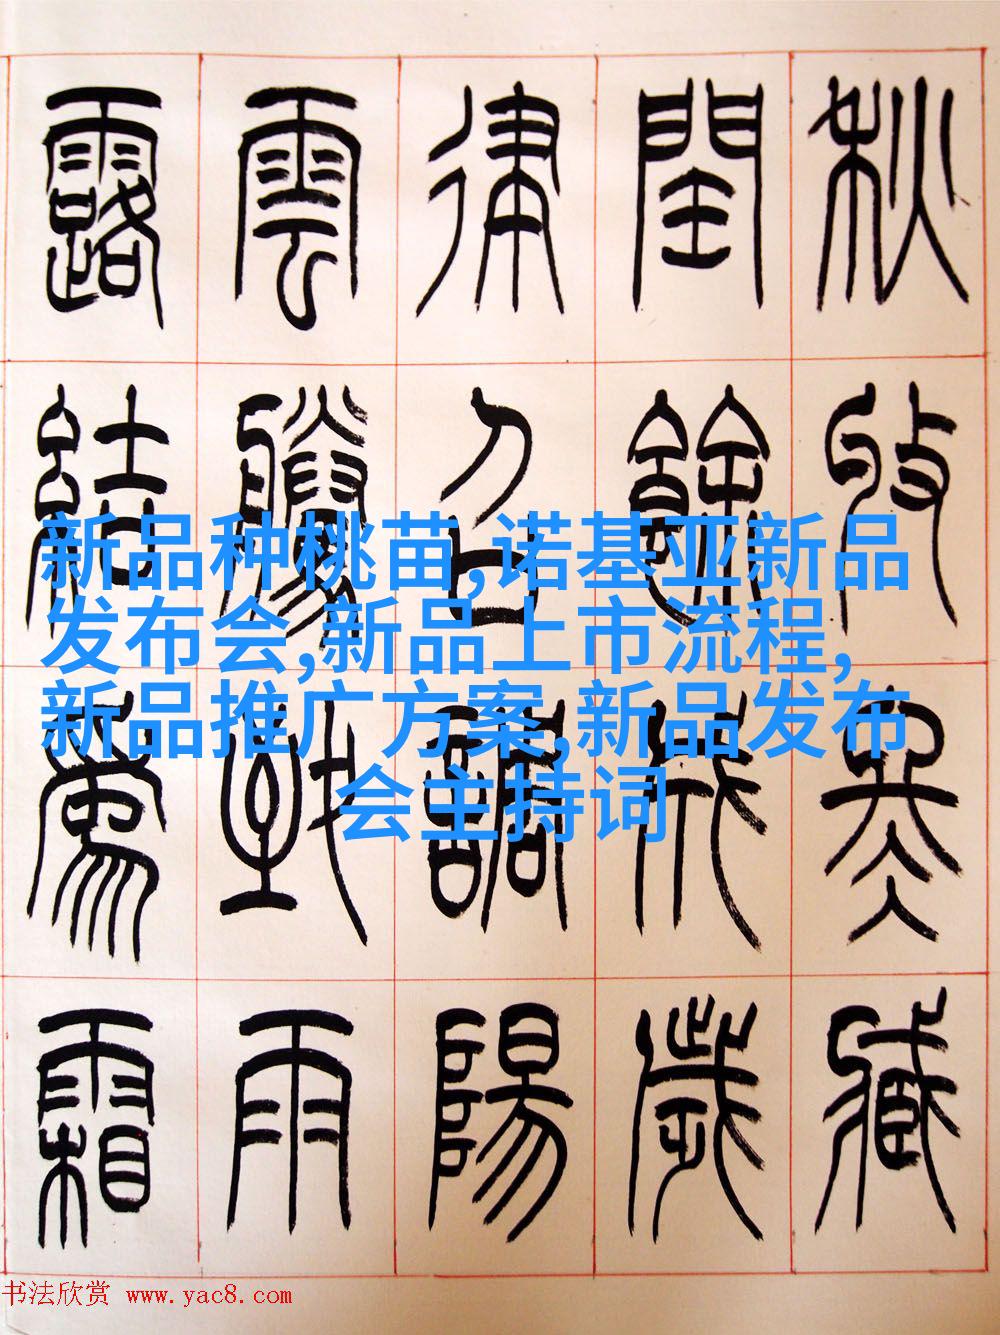 秋收冬藏
閏餘成歲
律召調陽
雲騰致雨
露結爲霜
新品种桃苗,诺基亚新品
发布会,新品上市流程,
新品推广方案,新品发布
会主持词
书法欣赏 www.yac8.com